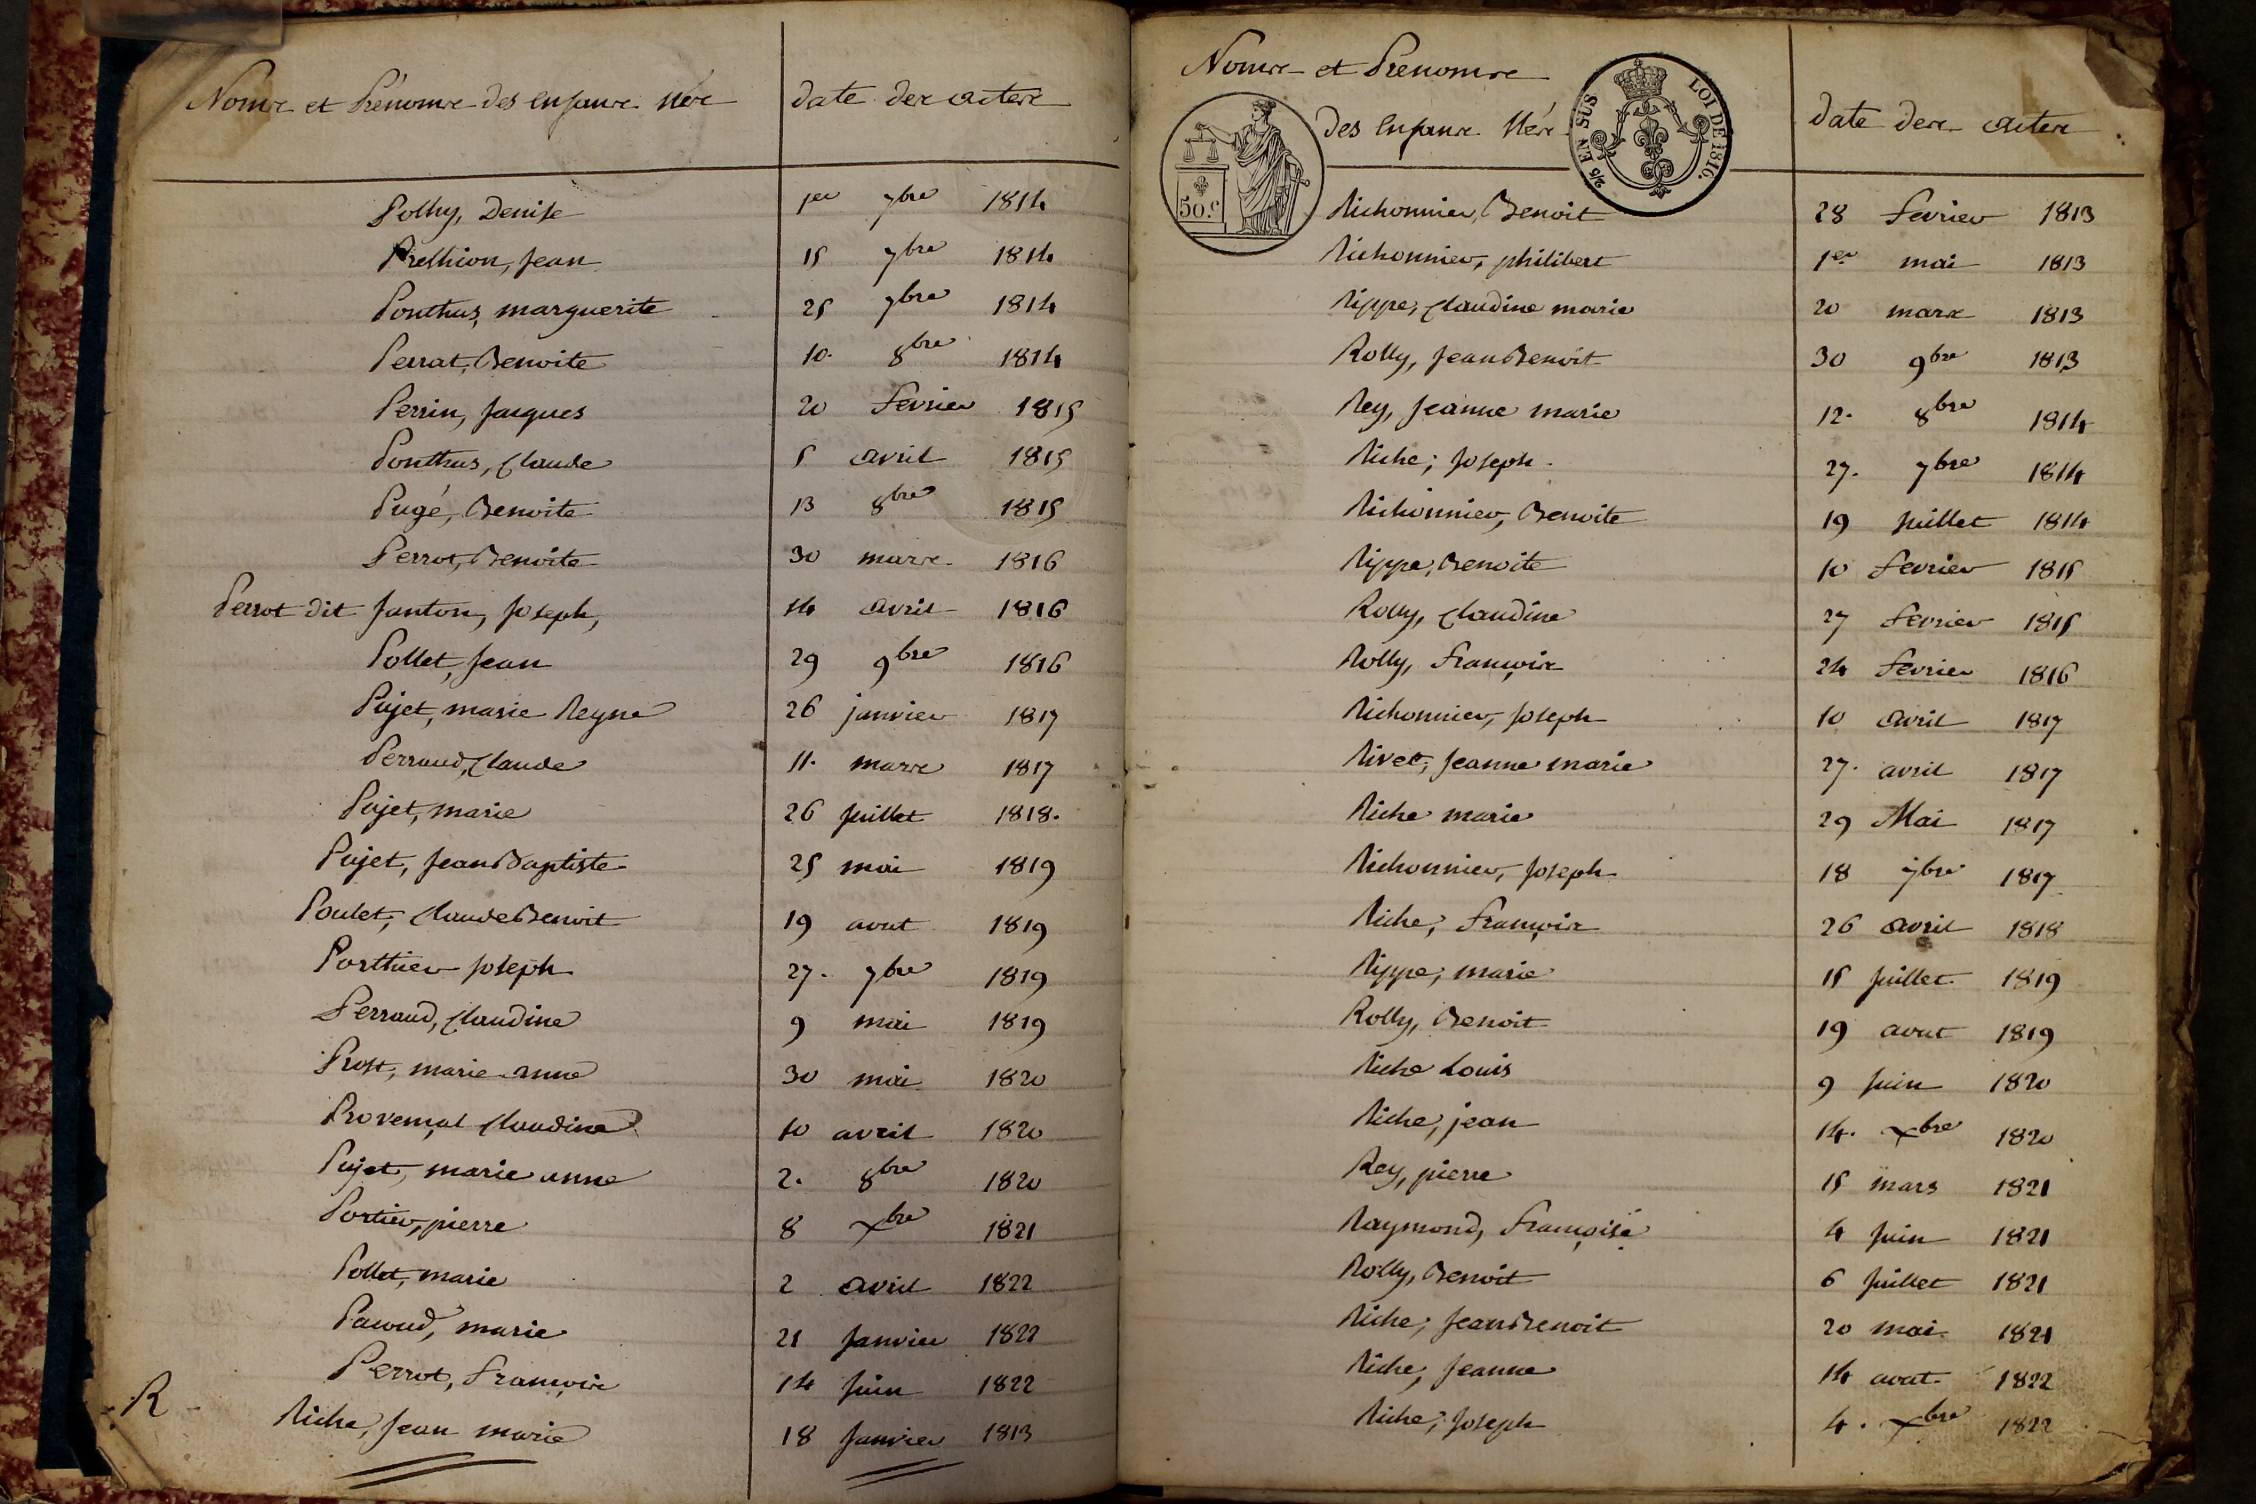 Noms et Prénoms des enfans Nés date des actes
Polhy, Denise 1er 7bre 1814
Prethion, Jean 15 7bre 1814
Ponthus, marguerite 25 7bre 1814
Perrat, Benoite 10. 8bre 1814
Perrin, Jacques 20 Fevrier 1815
Ponthus, Claude 5 avril 1815
Pugé, Benoite 13 8bre 1815
Perrot, Benoite 30 mars 1816
Perrot dit Janton, Joseph, 14 avril 1816
Pollet, Jean 29 9bre 1816
Pujet, marie Reyne 26 janvier 1817
Perraud, Claude 11. mars 1817
Pujet, marie 26 Juillet 1818.
Pujet, Jean Baptiste 25 mai 1819
Poulet, Claude Benoit 19 aout 1819
Porthier Joseph 27. 7bre 1819
Perraud, Claudine 9 mai 1819
Prost, marie anne 30 mai 1820
Provençal Claudine 10 avril 1820
Pujet, marie anne 2. 8bre 1820
Portier, pierre 8 Xbre 1821
Pollet, marie 2 avril 1822
Pacoud, marie 21 Janvier 1822
Perrot, François 14 Juin 1822
R Riche, Jean marie 18 Janvier 1813
Noms et Prenoms
des enfans Nés date des actes
50.c
2/5 EN SUS LOI DE 1816.
Richonnier, Benoit 28 Fevrier 1813
Richonnier, philibert 1er mai 1813
Rippe, Claudine marie 20 mars 1813
Rolly, Jean Benoit 30 9bre 1813
Rey, Jeanne marie 12. 8bre 1814
Riche, Joseph. 27. 7bre 1814
Richonnier, Benoite 19 Juillet 1814
Rippe, Benoite 10 Fevrier 1815
Rolly, Claudine 27 Fevrier 1815
Rolly, François 24 Fevrier 1816
Richonnier, Joseph 10 avril 1817
Rivet, Jeanne marie 27. avril 1817
Riche marie 29 Mai 1817
Richonnier, Joseph 18 7bre 1817
Riche, François 26 avril 1818
Rippe, marie 15 Juillet 1819
Rolly, Benoit 19 aout 1819
Riche Louis 9 Juin 1820
Riche, jean 14. Xbre 1820
Rey, pierre 15 mars 1821
Raymond, Françoise 4 Juin 1821
Rolly, Benoit 6 Juillet 1821
Riche, Jean Benoit 20 mai 1821
Riche, Jeanne 14 aout 1822
Riche, Joseph 4. Xbre 1822